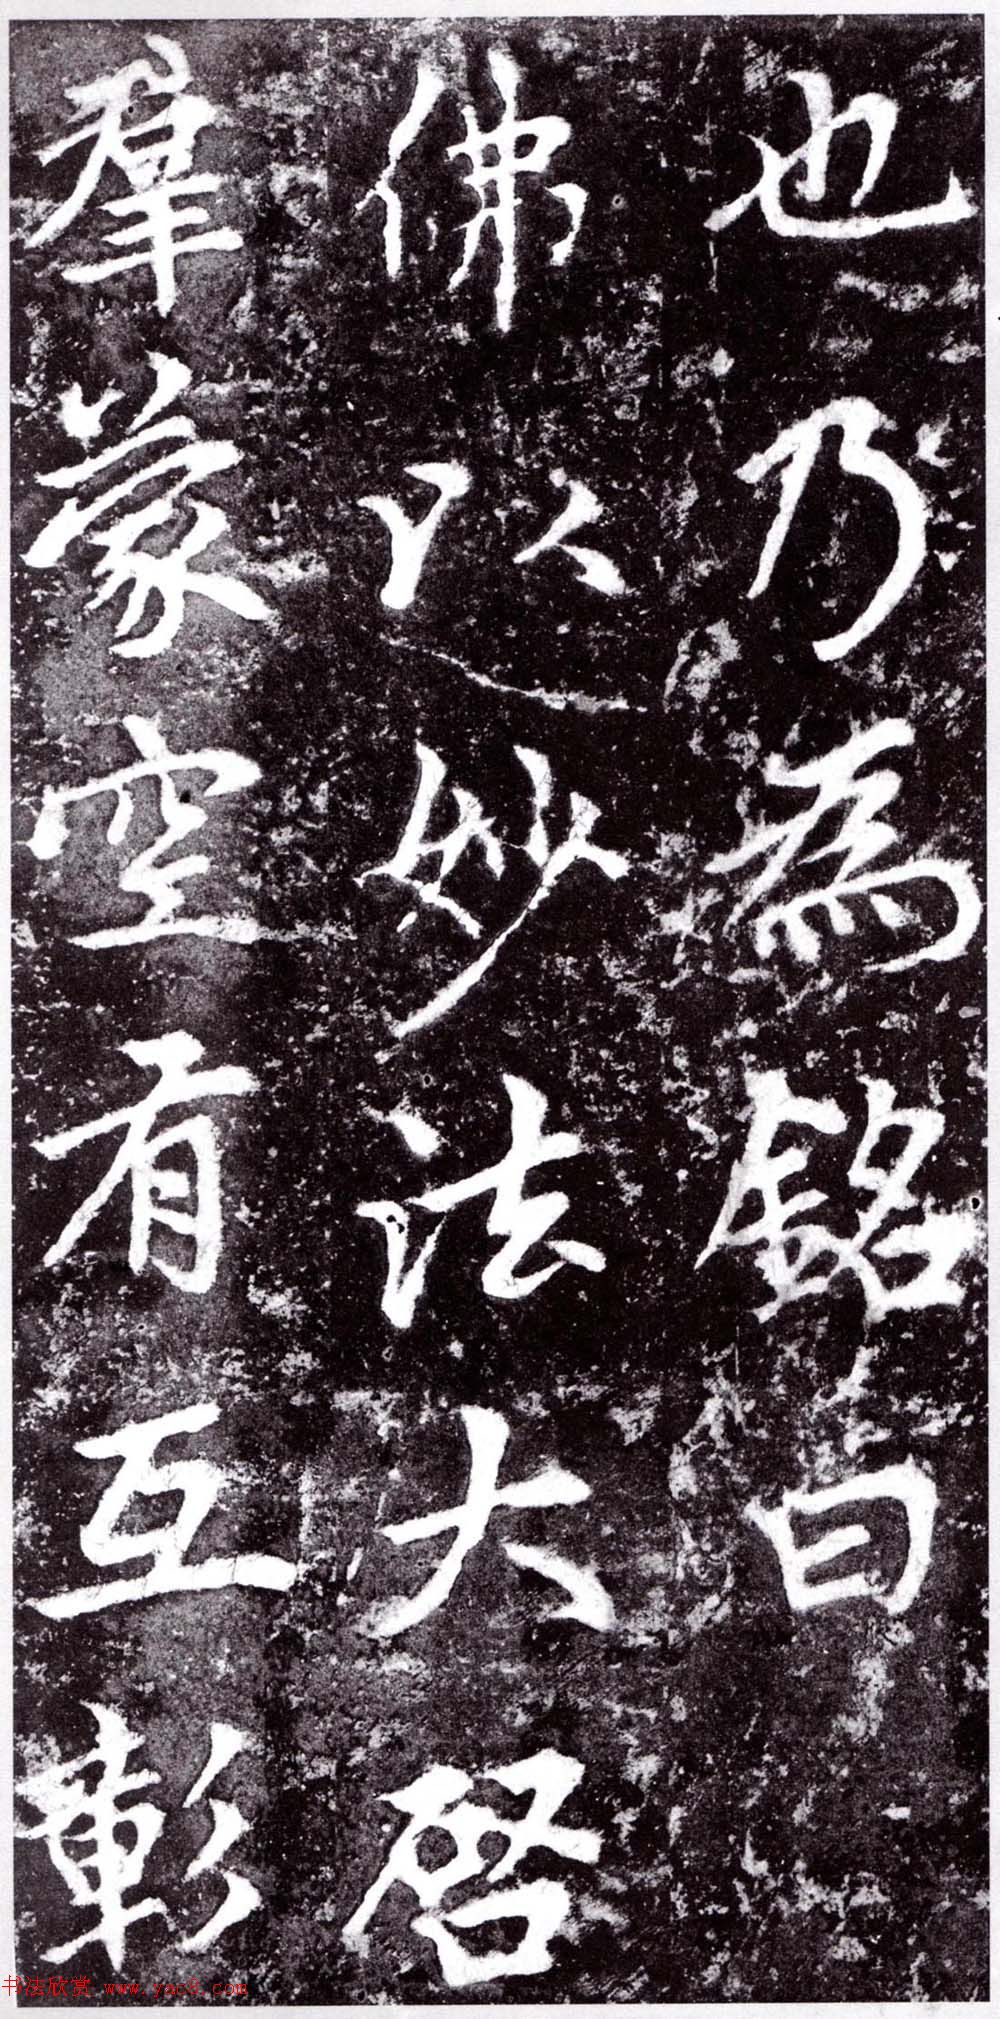 也乃為銘曰
佛以妙法大啓
羣蒙空有互彰
书法欣赏 www.yac8.com